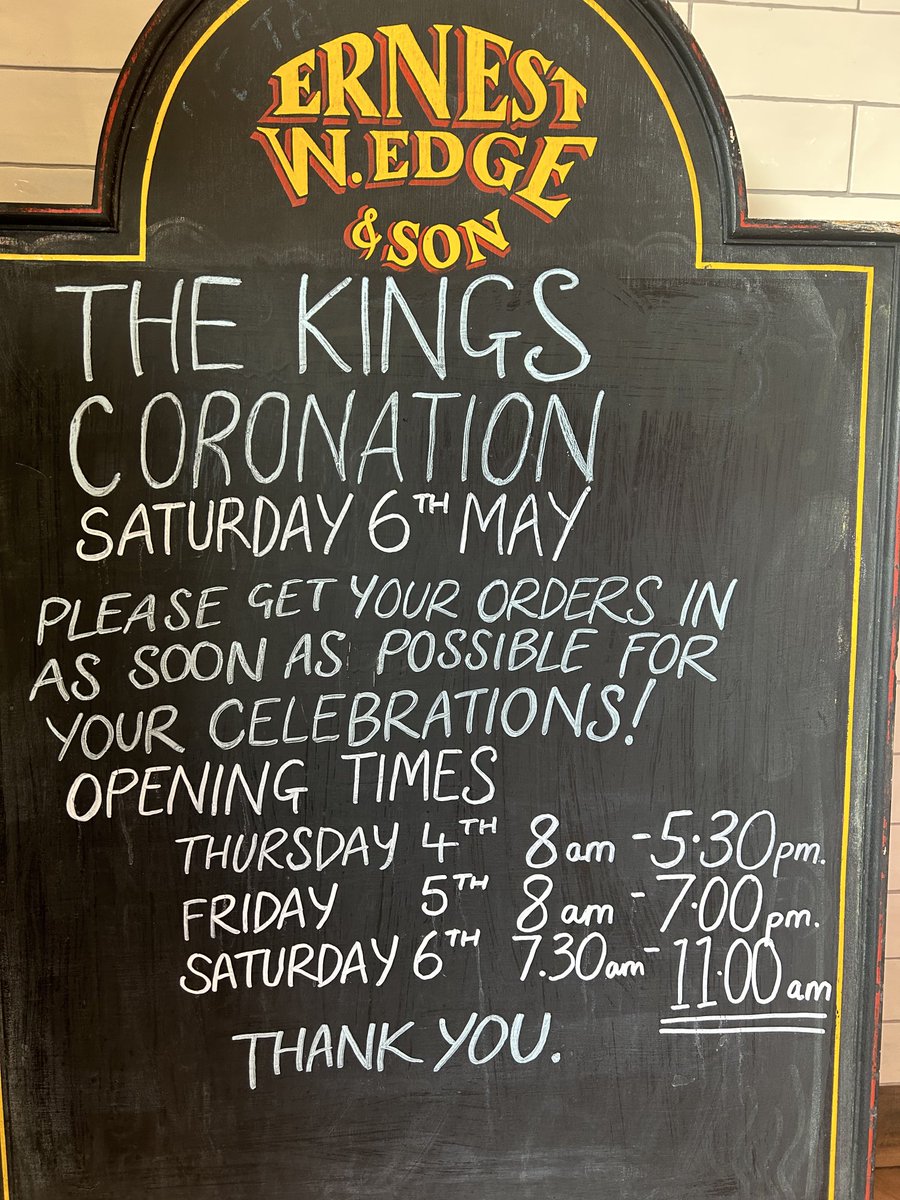 ERNEST
W. EDGE
& SON
THE KINGS
CORONATION
SATURDAY 6TH MAY
PLEASE GET YOUR ORDERS IN
AS SOON AS POSSIBLE FOR
YOUR CELEBRATIONS!
OPENING TIMES
THURSDAY 4TH 8am - 5.30pm.
FRIDAY 5TH 8am - 7.00pm.
SATURDAY 6TH 7.30am - 11.00am
THANK YOU.